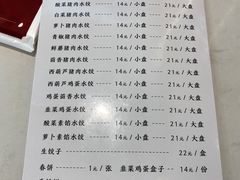 酸菜猪肉水饺 14元/小盘 21元/大盘
白菜猪肉水饺 14元/小盘 21元/大盘
萝卜猪肉水饺 14元/小盘 21元/大盘
青椒猪肉水饺 14元/小盘 21元/大盘
鲜蘑猪肉水饺 14元/小盘 21元/大盘
茴香猪肉水饺 14元/小盘 21元/大盘
西葫芦猪肉水饺 14元/小盘 21元/大盘
西葫芦鸡蛋水饺 14元/小盘 21元/大盘
鸡蛋茴香水饺 14元/小盘 21元/大盘
韭菜鸡蛋水饺 14元/小盘 21元/大盘
酸菜素馅水饺 14元/小盘 21元/大盘
萝卜素馅水饺 14元/小盘 21元/大盘
生饺子 22元/盒
春饼 1元/张 韭菜鸡蛋盒子 14元/份